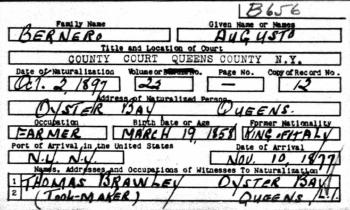 B656
Family Name Given Name or Names
BERNERO AUGUSTO
Title and Location of Court
COUNTY COURT QUEENS COUNTY N.Y.
Date of Naturalization Volume or Bundle No. Page No. Copy of Record No.
OCT. 2, 1897 23 — 12
Address of Naturalized Person
OYSTER BAY QUEENS.
Occupation Birth Date or Age Former Nationality
FARMER MARCH 19, 1858 KING OF ITALY
Port of Arrival in the United States Date of Arrival
N.Y. N.Y. NOV. 10, 1877
Names, Addresses and Occupations of Witnesses To Naturalization
1 THOMAS BRAWLEY OYSTER BAY
2 (TOOL-MAKER) QUEENS, L.I.